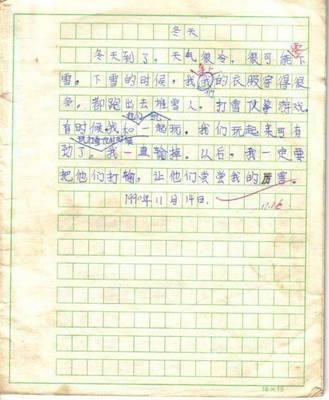 冬天
冬天到了，天气很冷，很可能下
雪。下雪的时候，我 我们的衣服穿得很
多，都跑出去堆雪人，打雪仗等游戏。
有时候 一起玩，我们玩起来可有
劲了。我一直输掉。以后，我一定要
把他们打输，让他们尝尝我的厉害。
1990年11月14日.